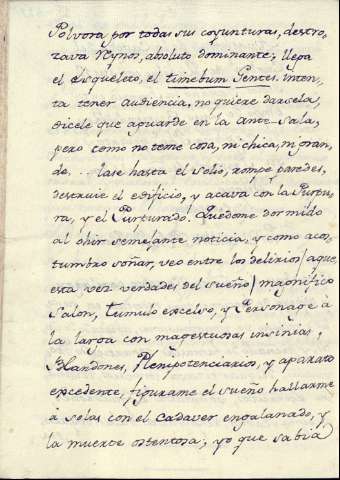 Polvora por todas sus coyunturas, destro-
zava Reynos, absoluto dominante; llega
el Esqueleto, el timebum Gentes. inten-
ta tener audiencia, no quiere darsela,
dicele que aguarde en la ante-sala,
pero como no teme cosa, ni chica, ni gran-
de... lase hasta el solio, rompe paredes,
destruie el edificio, y acava con la Purpu-
ra, y el Purpurado. Quedome dormido
al ohir semejante noticia, y como acos-
tumbro soñar, veo entre los delirios (aque
esta vez verdades del sueño) magnifico
Salon, tumulo excelso, y Personage à
la larga con magestuosas insinias,
Blandones, Plenipotenciarios, y aparato
excedente, figurame el sueño hallarme
à solas con el Cadaver engalanado, y
la muerte ostentosa; yo que sabia